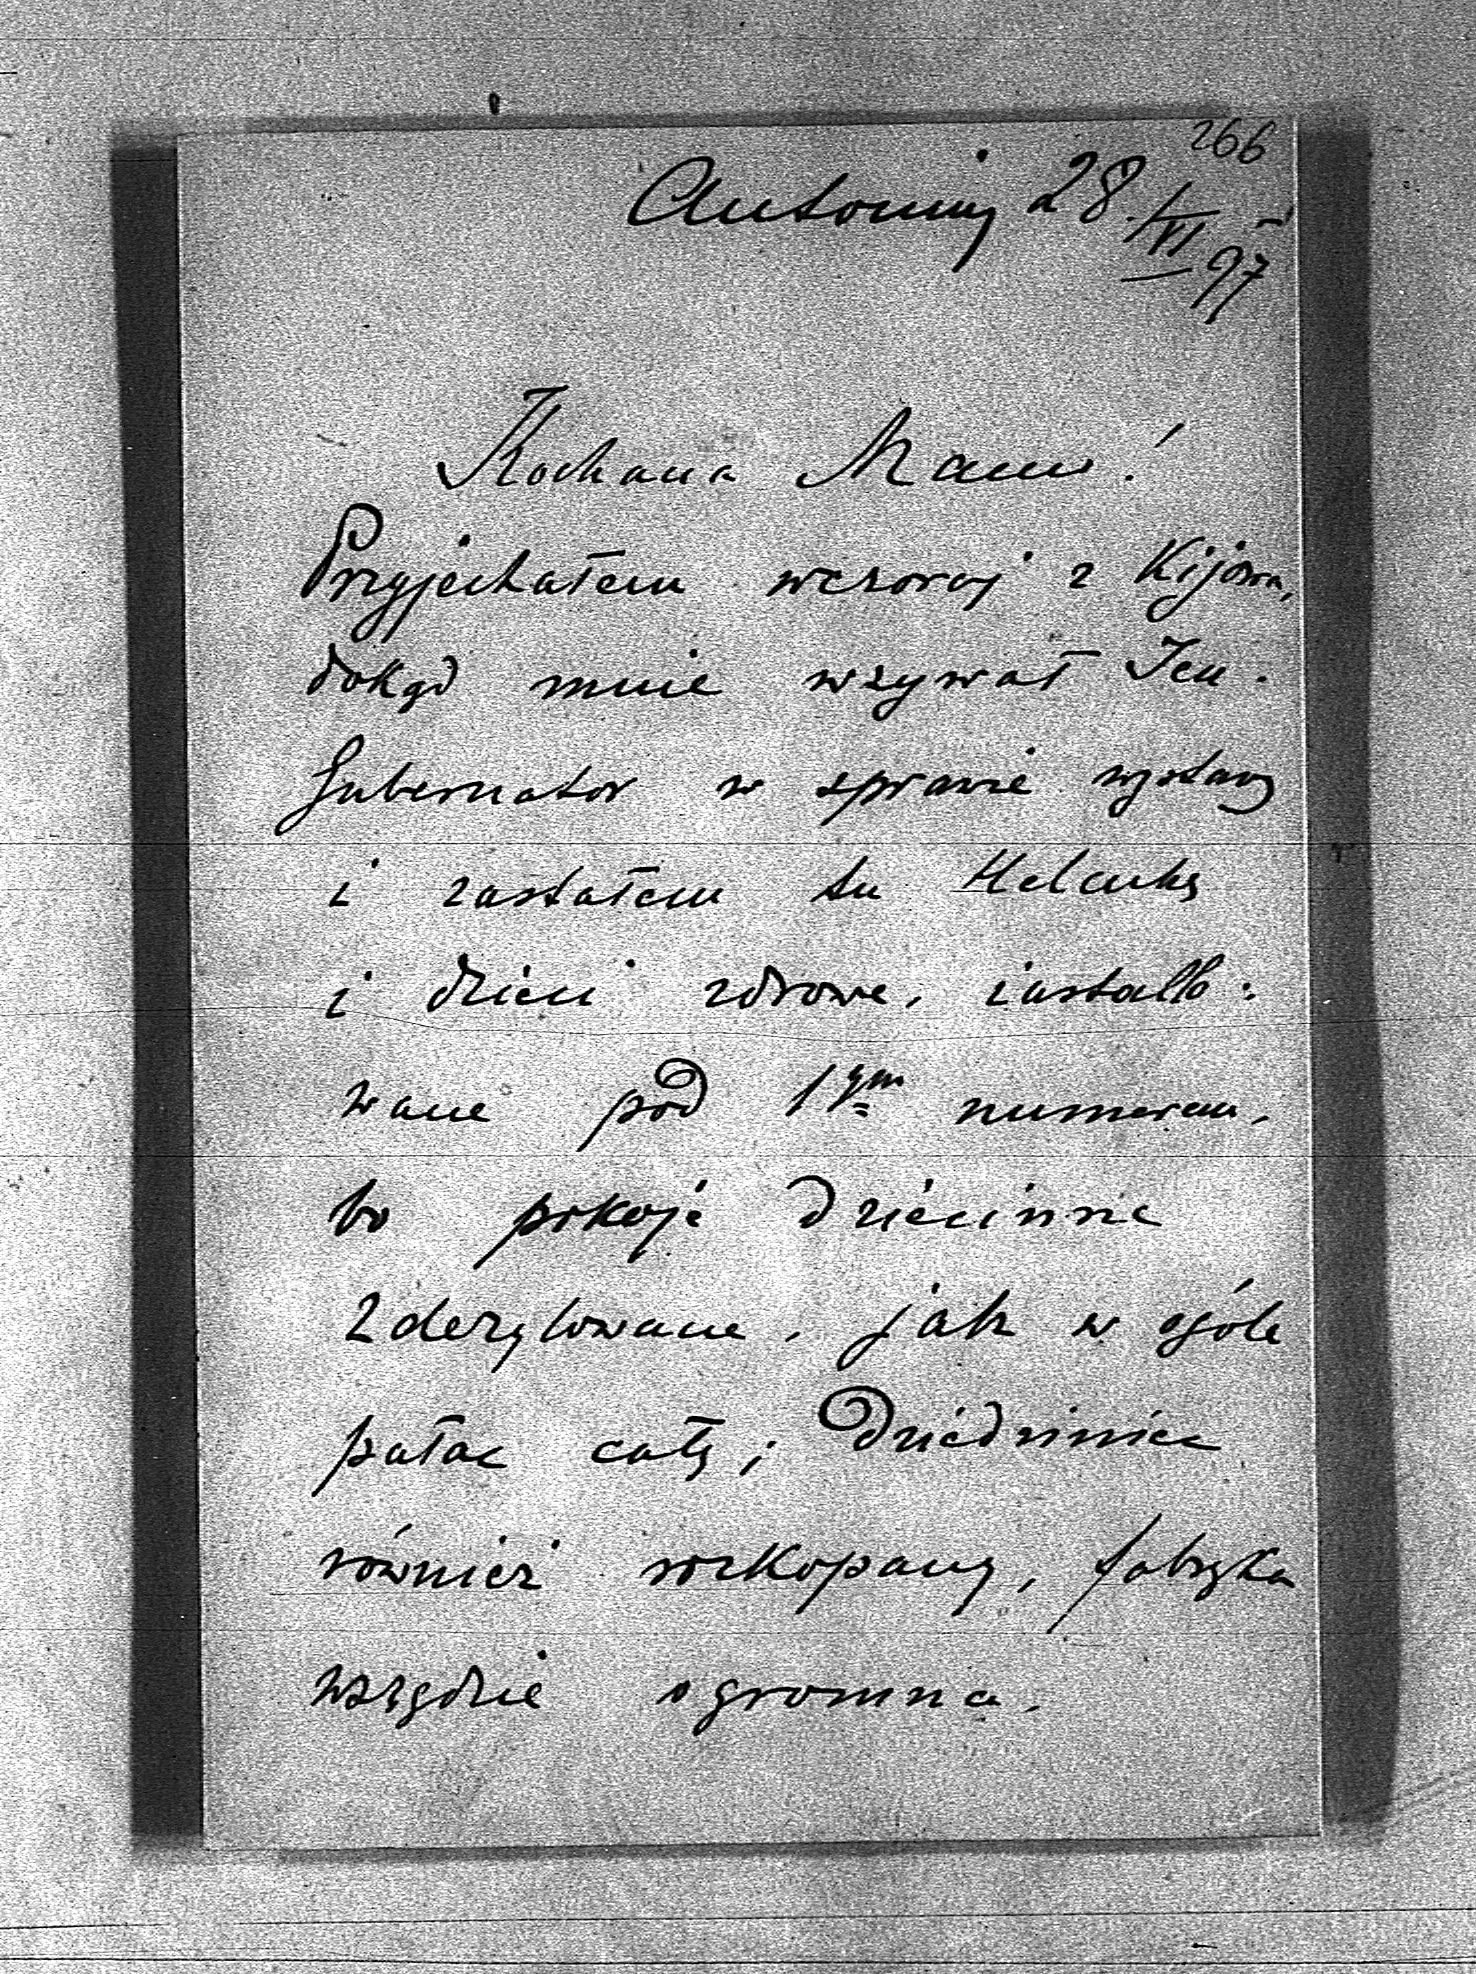 266
Antoniny 28./VI 97
Kochana Mamo!
Przyjechałem wczoraj z Kijowa,
dokąd mnie wzywał Jen.
Gubernator w sprawie wystawy
i zastałem tu Helenkę
i dzieci zdrowe, installo-
wane pod 1ym numerem,
bo pokoje dziecinne
zdezelowane, jak w ogóle
pałac cały; Dziedziniec
również rozkopany, fabryka
wszędzie ogromna.